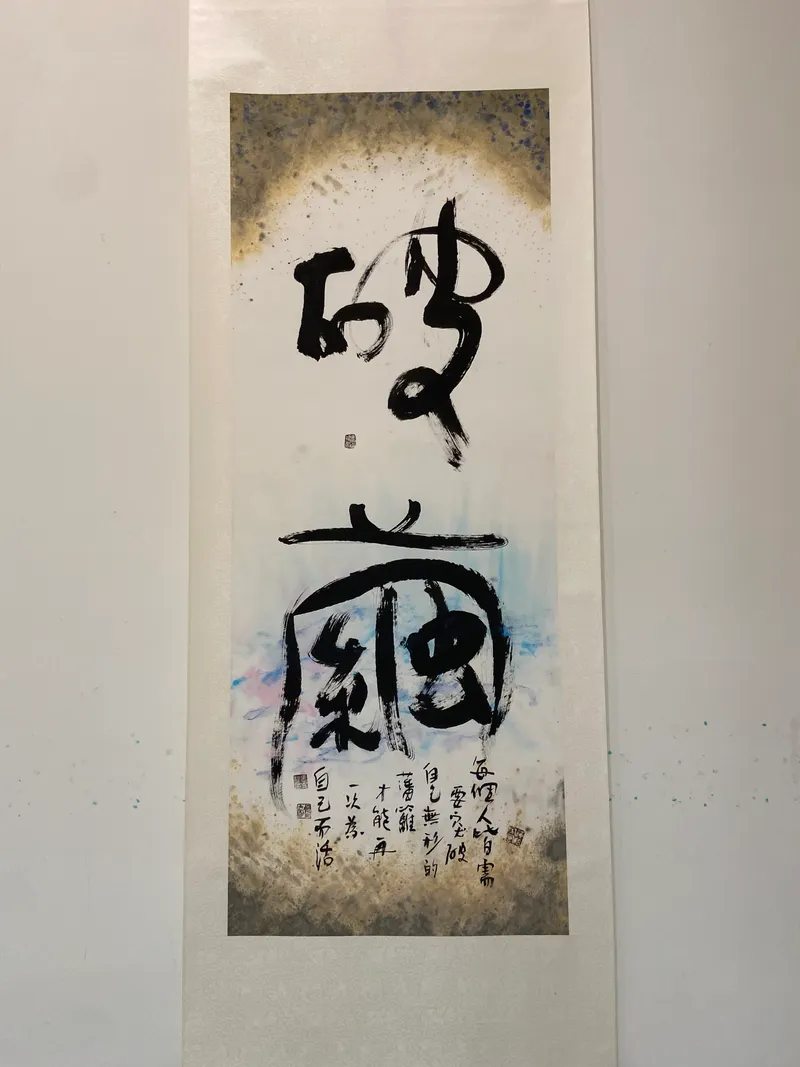 破繭
每個人皆需
要突破
自己無形的
藩籬
才能再
一次為
自己而活